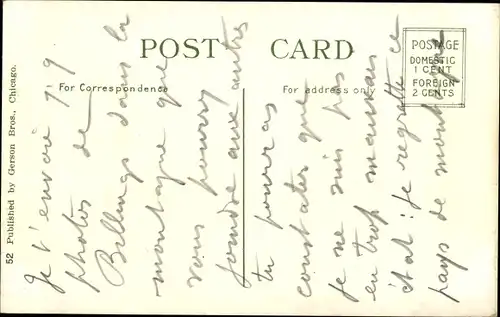 POST CARD
For Correspondence
For address only
POSTAGE
DOMESTIC
1 CENT
FOREIGN
2 CENTS
52 Published by Gerson Bros., Chicago.
Je t'envoie 7 à 9
photos de
Billings dans la
montagne que
vous pourrez
joindre aux autres
tu pourras
constater que
je ne suis pas
en trop mauvais
état. Je regrette ce
pays de montagne